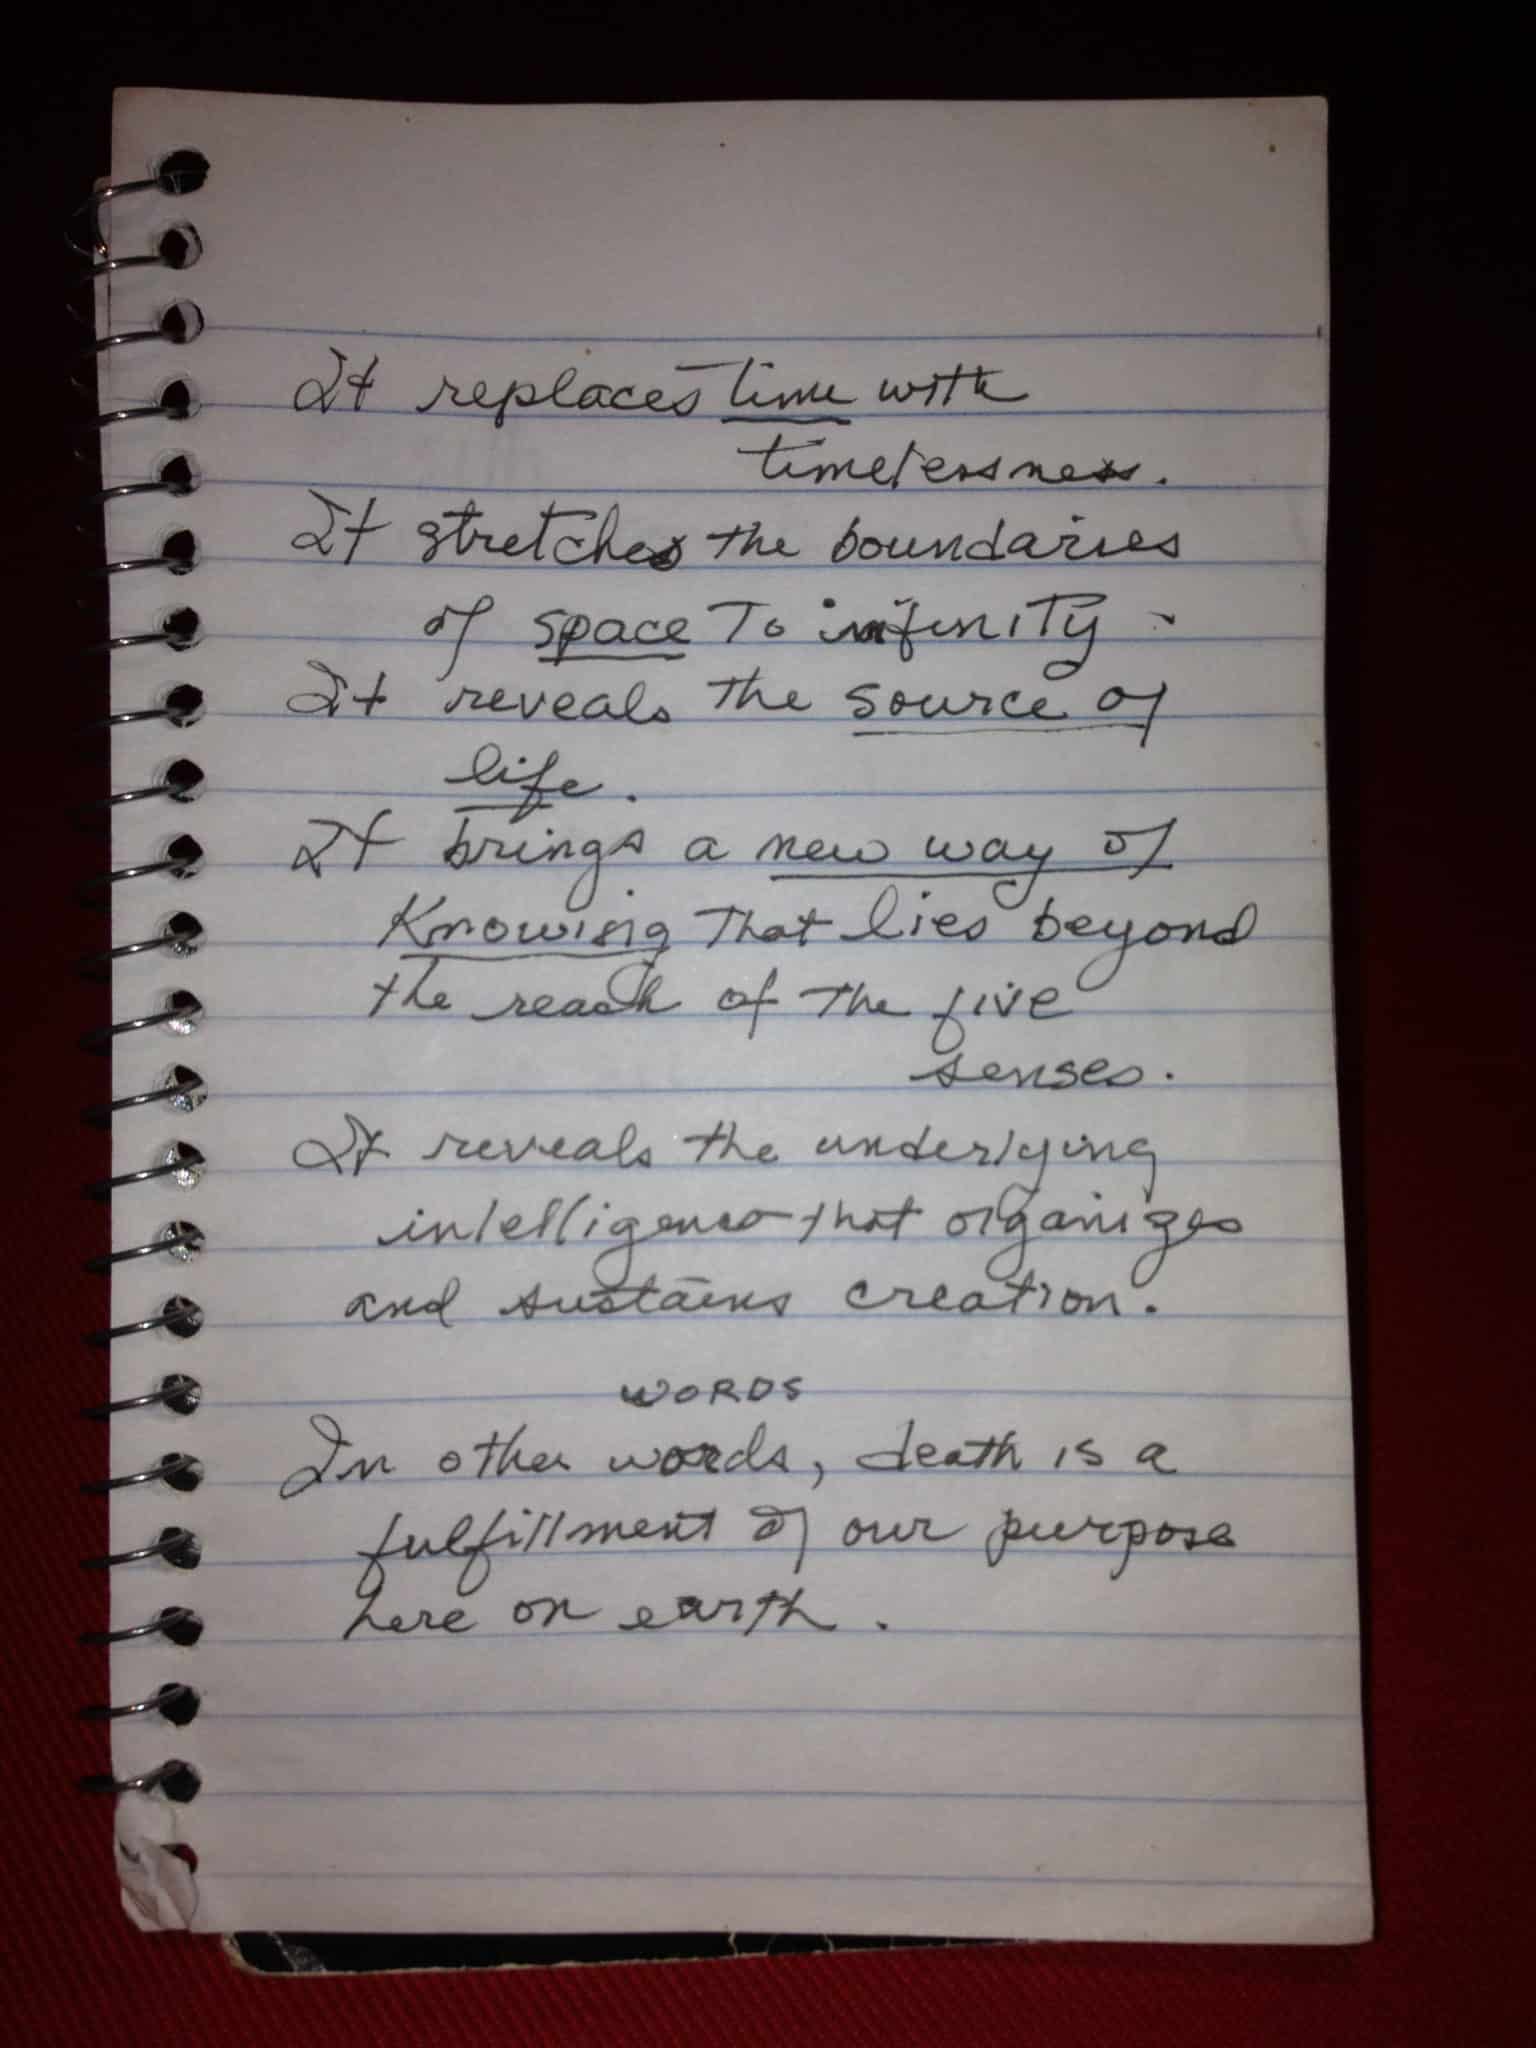 It replaces time with
timelessness.
It stretches the boundaries
of space To infinity.
It reveals the source of
life.
It brings a new way of
Knowing that lies beyond
the reach of the five
senses.
It reveals the underlying
intelligence that organizes
and sustains creation.
WORDS
In other words, death is a
fulfillment of our purpose
here on earth.